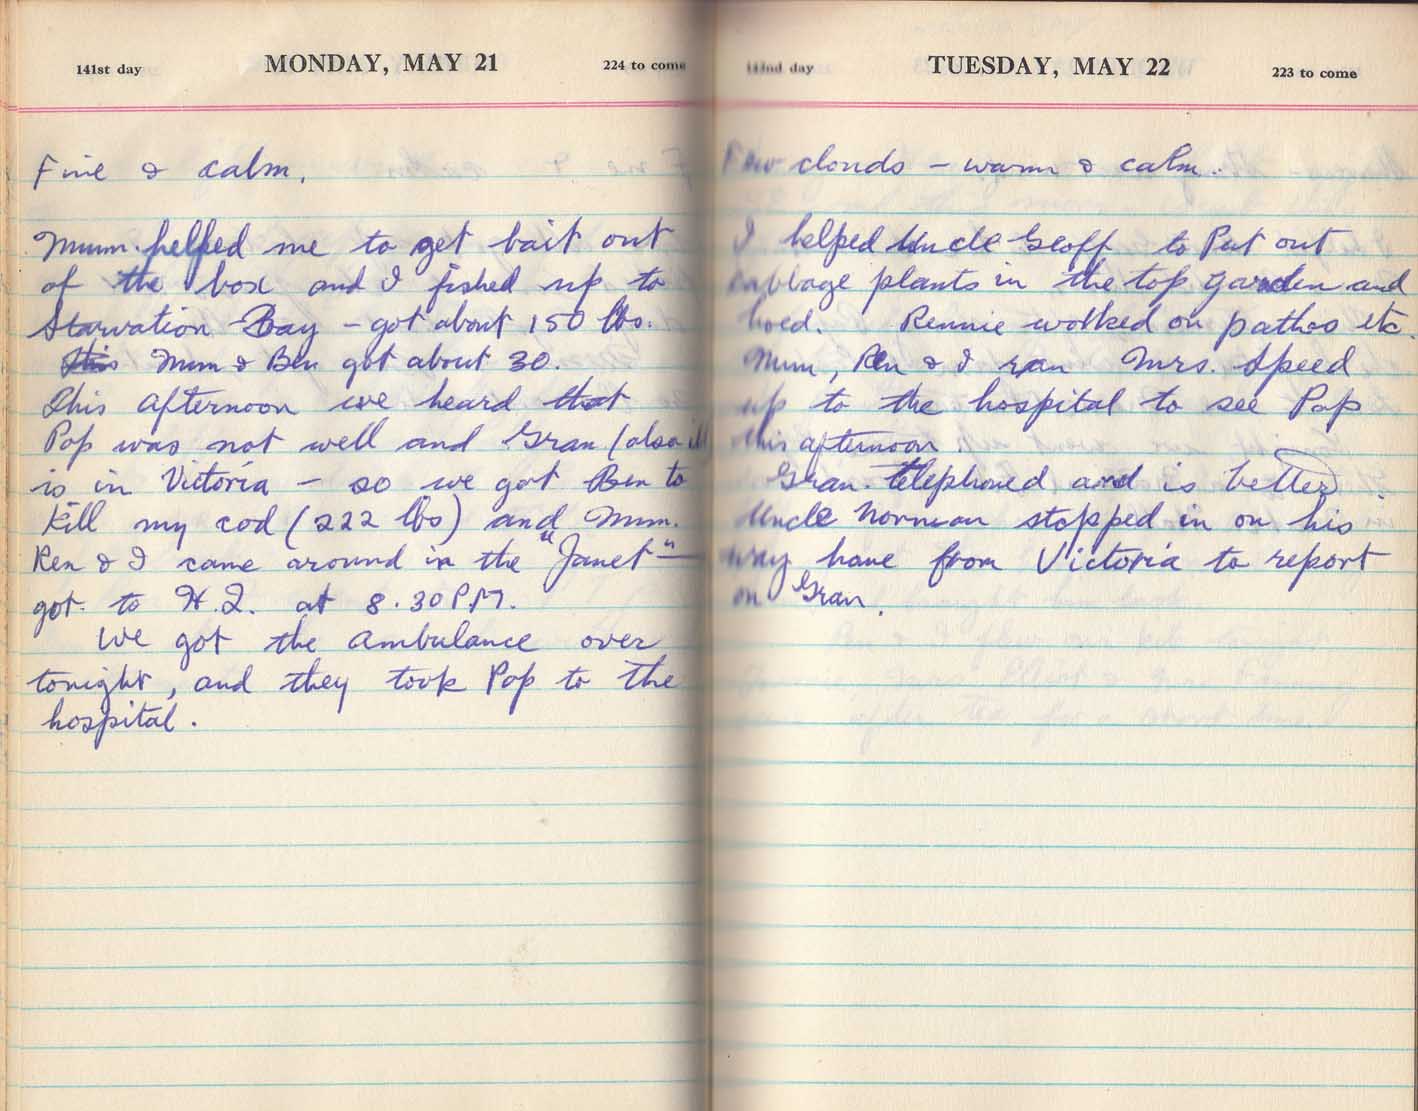 141st day MONDAY, MAY 21 224 to come
Fine & calm.
Mum helped me to get bait out
of the box and I fished up to
Starvation Bay - got about 150 lbs.
This Mum & Ben got about 30.
This afternoon we heard that
Pop was not well and Gran (also ill
is in Victoria - so we got Ben to
Kill my cod (222 lbs) and Mum.
Ren & I came around in the "Janet" -
got to H.Q. at 8.30 P.M.
We got the ambulance over
tonight, and they took Pop to the
hospital.
142nd day TUESDAY, MAY 22 223 to come
Few clouds - warm & calm.
I helped Uncle Geoff to Put out
cabbage plants in the top garden and
hoed. Rennie worked on paths etc
Mum, Ren & I ran Mrs. Speed
up to the hospital to see Pop
this afternoon.
Gran telephoned and is better.
Uncle Norman stopped in on his
way home from Victoria to report
on Gran.